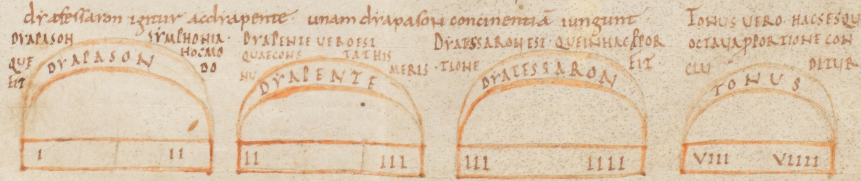 dyatessaron igitur ac dyapente unam dyapason concinentiã iungunt
DYAPASON SYMPHONIA
QUE HOCMO
FIT DO
DYAPASON
I II
DYAPENTE VERO EST
QUAE CONS TAT HIS
NU MERIS
DYAPENTE
II III
DYATESSARON EST QUE IN HAC PPOR
TIONE FIT
DYATESSARON
III IIII
TONUS VERO HAC SESQU
OCTAVA PPORTIONE CON
CLU DITUR
TONUS
VIII VIIII